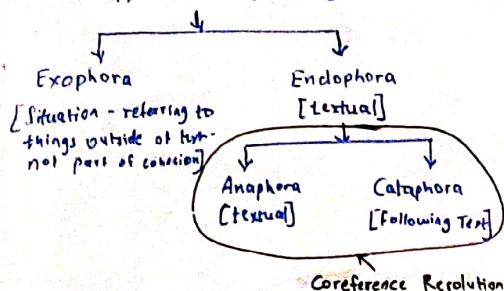 Exophora
[Situation - referring to
things outside of text-
not part of cohesion]
Endophora
[textual]
Anaphora
[textual]
Cataphora
[Following Text]
Coreference Resolution